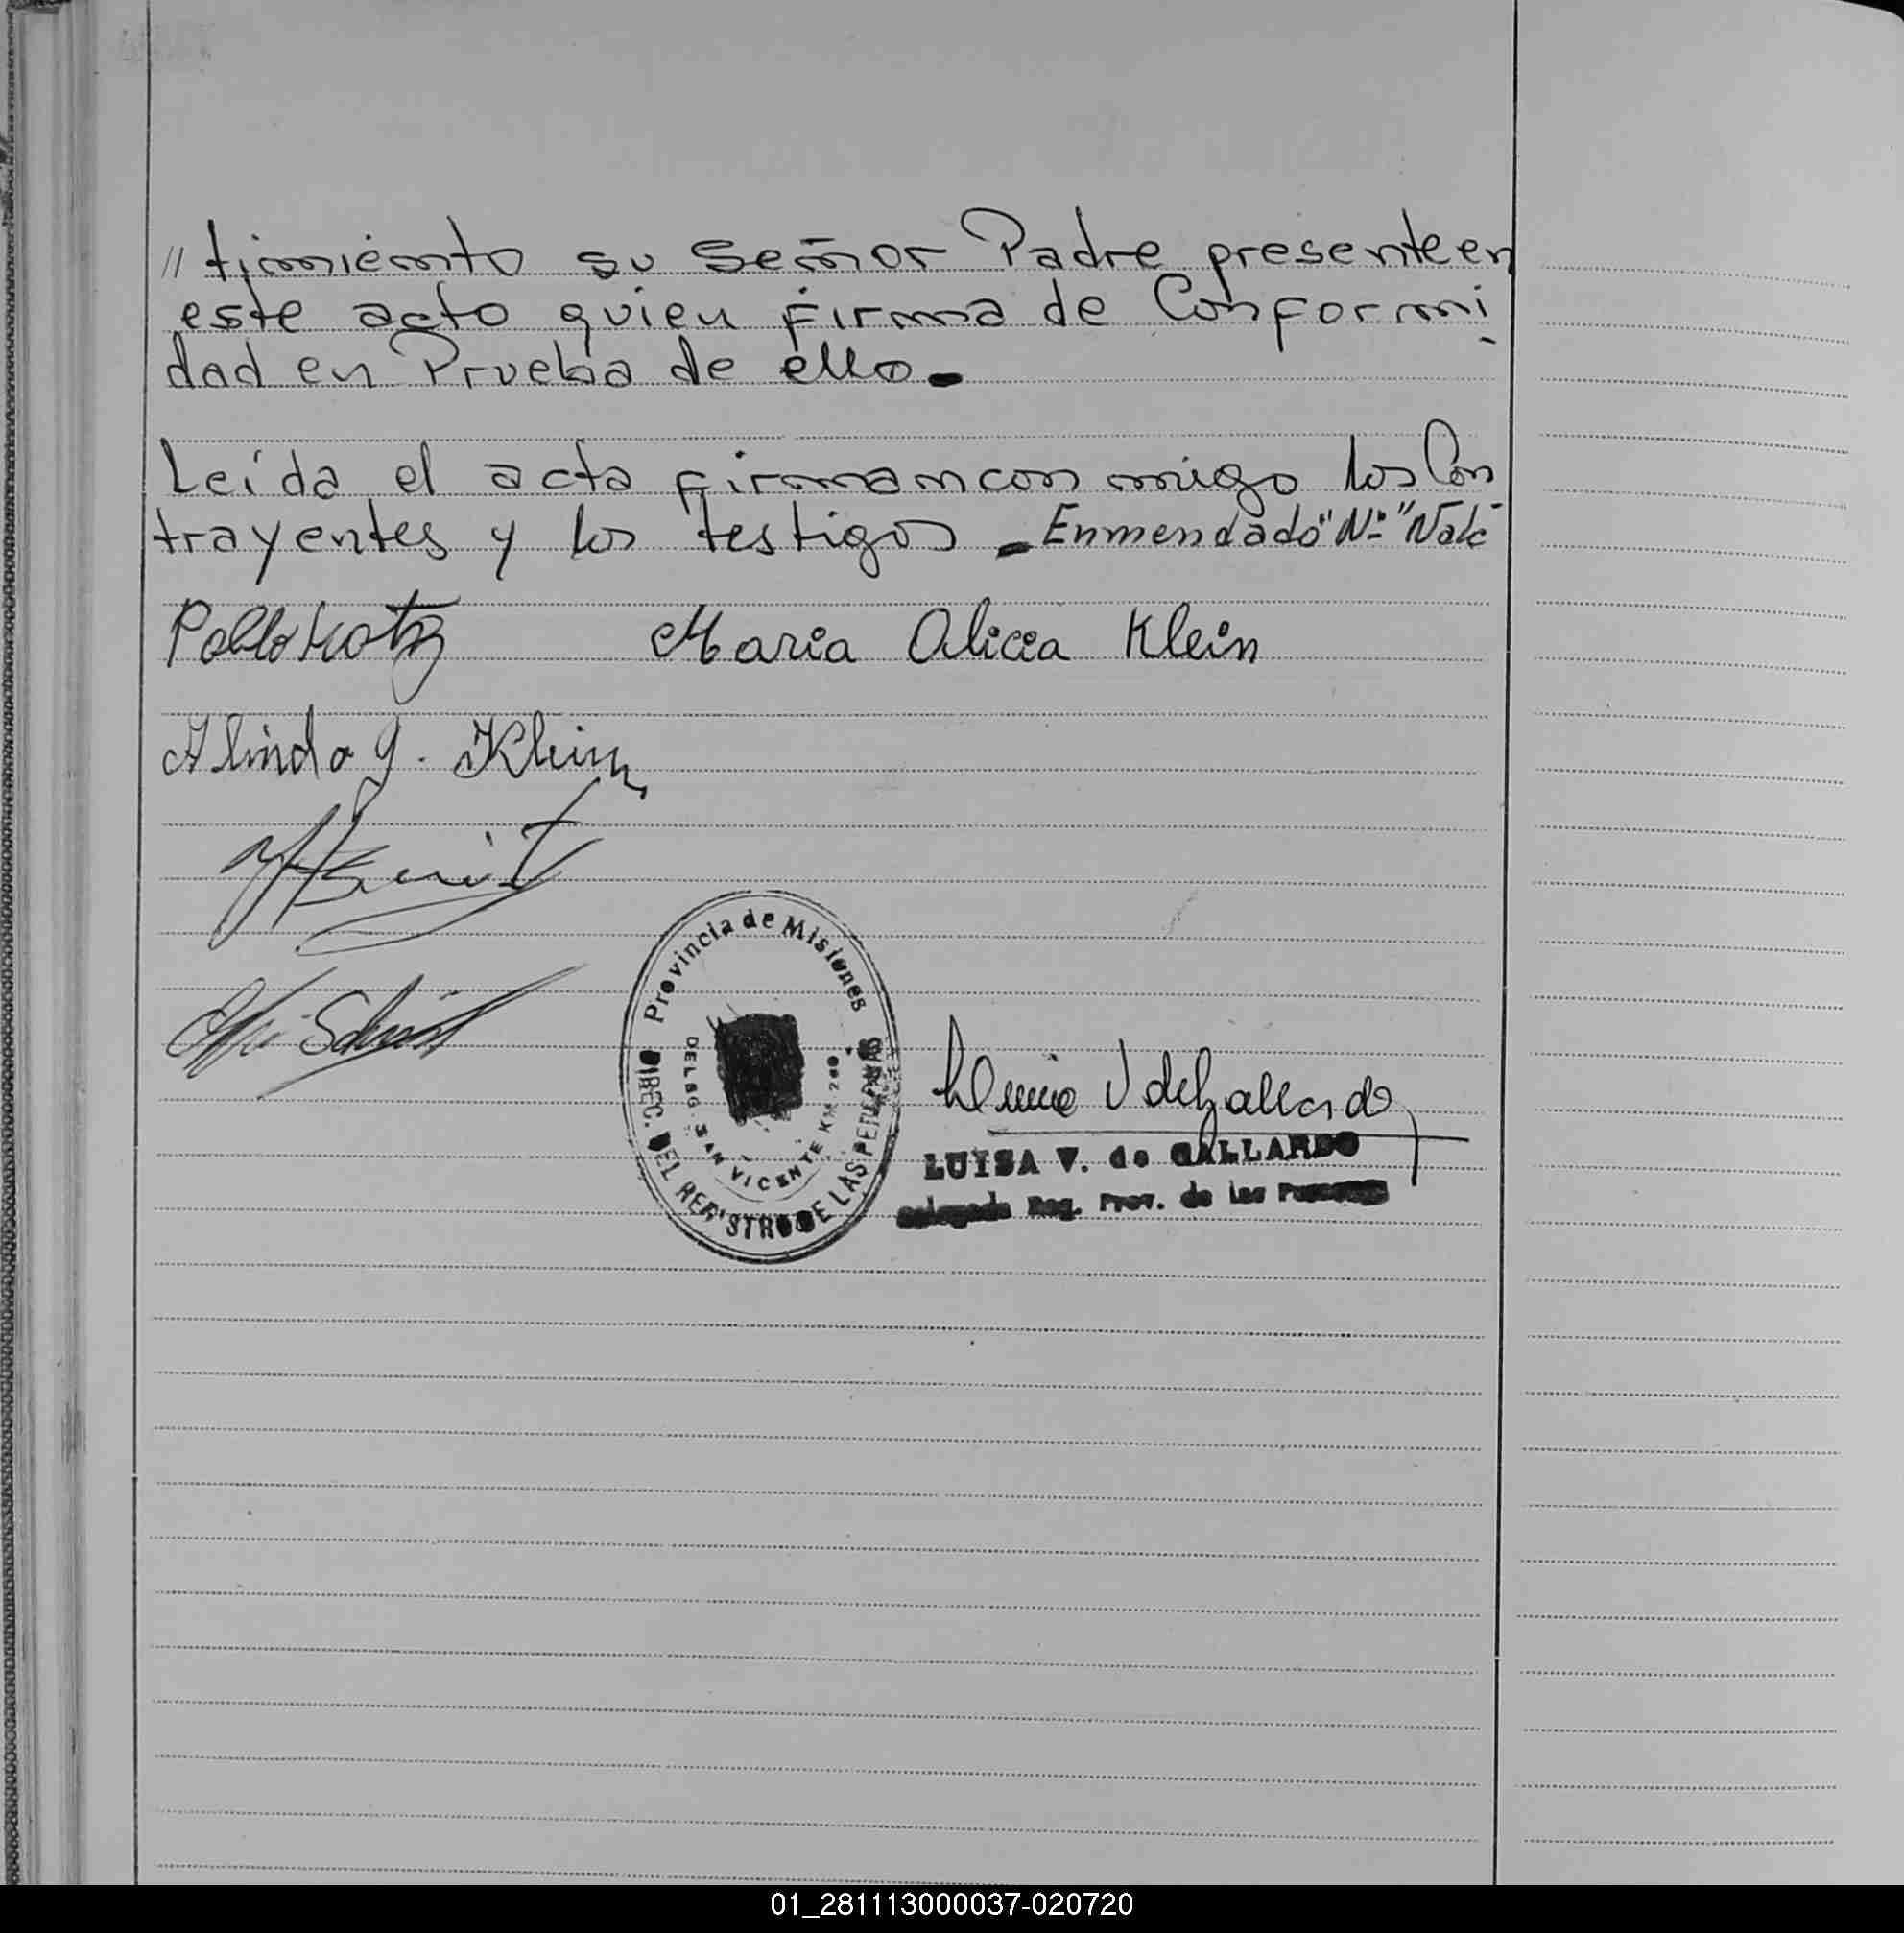 // timiento su Señor Padre presente en
este acto quien firma de Conformi
dad en Prueba de ello.-
Leída el acta firman con migo los Con
trayentes y los testigos.- Enmendado "Nº" Vale
Pablo Kotz
Maria Alicia Klein
Alindo J. Klein
Provincia de Misiones
DIREC. DEL REGISTRO DE LAS PERSONAS
DELEG. SAN VICENTE KM. 260
Luisa V de Gallardo
LUISA V. de GALLARDO
Delegada Reg. Prov. de las Personas
01_281113000037-020720